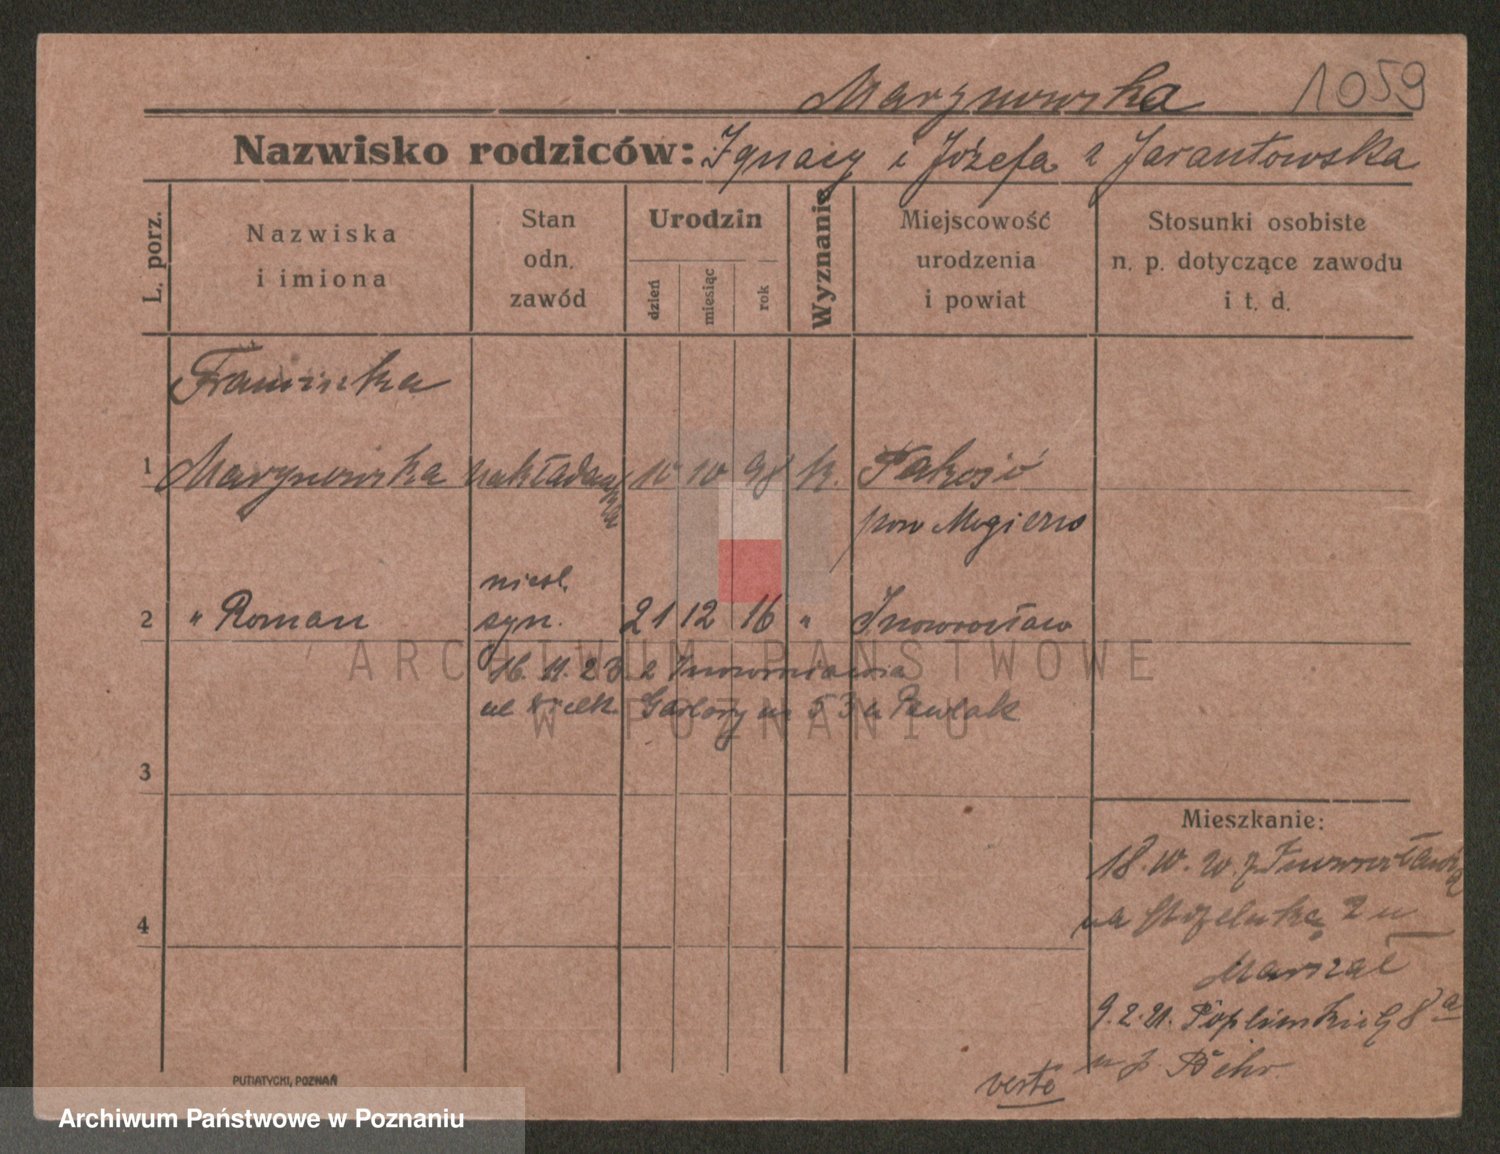 Marynowska 1059
Nazwisko rodziców: Ignacy i Józefa z Jarantowska
L. porz.
Nazwiska
i imiona
Stan
odn.
zawód
Urodzin
dzień
miesiąc
rok
Wyznanie
Miejscowość
urodzenia
i powiat
Stosunki osobiste
n. p. dotyczące zawodu
i t. d.
1 Marynowska 10 10 98 k. Pakość
pow Mogilno
2 " Roman
syn. 21 12 16 " Inowrocław
16. 11. 23. z Inowrocławia
53 u Pawlak
3
4
Mieszkanie:
18. 10. 20. z Inowrocławia
na Strzelecką 2 u
Marszał
9. 2. 21. 8a
u p.
verte
PUTIATYCKI, POZNAŃ
ARCHIWUM PAŃSTWOWE
W POZNANIU
Archiwum Państwowe w Poznaniu